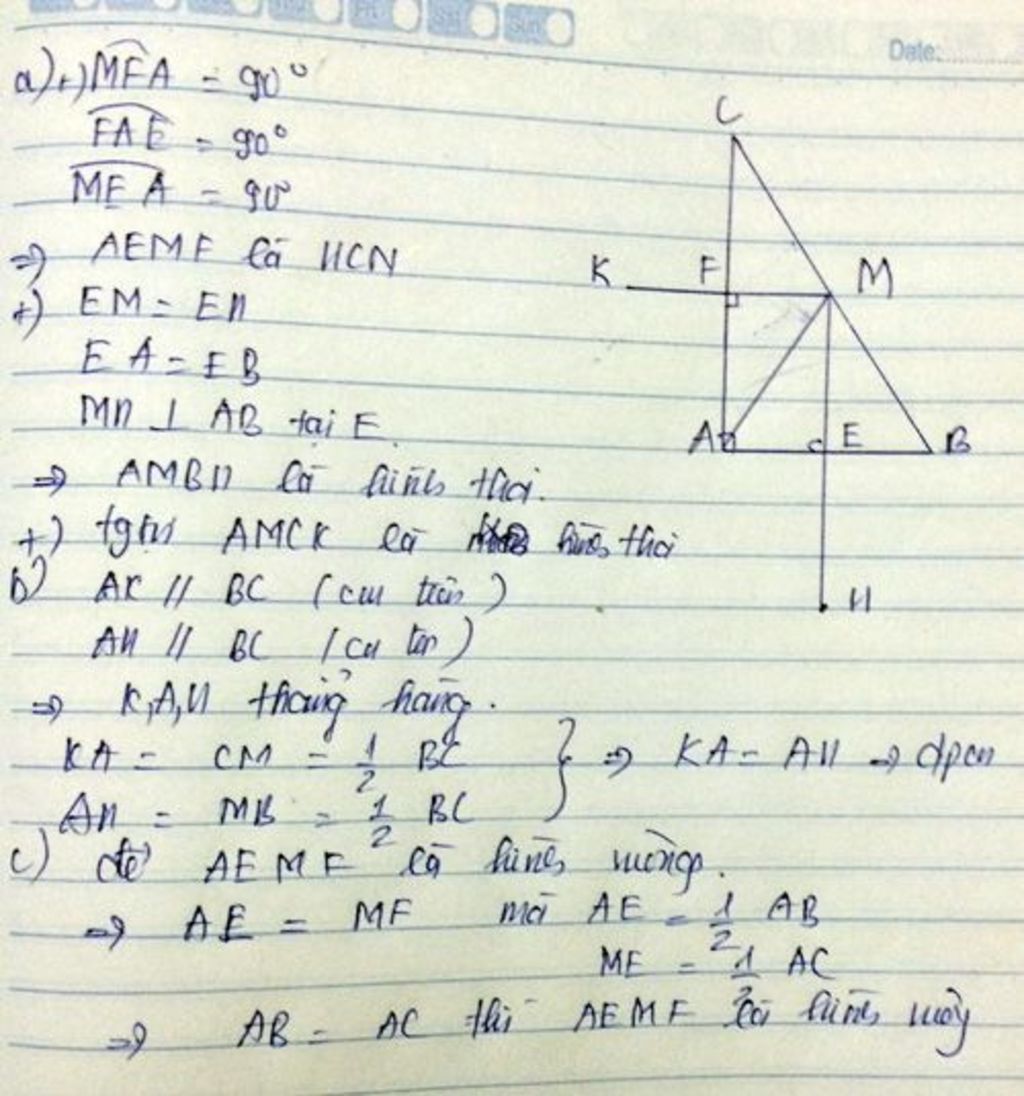 Date:
a) +) MFA = 90°
FAE = 90°
MEA = 90°
=> AEMF là HCN
+) EM = EH
EA = EB
MH ⊥ AB tại E
=> AMBH là hình thoi.
+) tgtu AMCK là hình thoi
b) AK // BC (cm trên)
AH // BC (cm trên)
=> K,A,H thẳng hàng.
KA = CM = 1/2 BC
AH = MB = 1/2 BC } => KA = AH -> đpcm
c) để AEMF là hình vuông.
=> AE = MF mà AE = 1/2 AB
ME = 1/2 AC
=> AB = AC thì AEMF là hình vuông
C
K F M
A E B
H